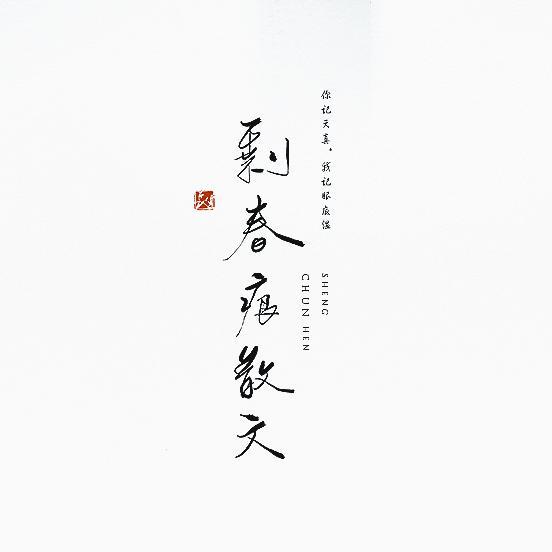 你记天真，我记眼底温
剩春痕散文
SHENG
CHUN HEN